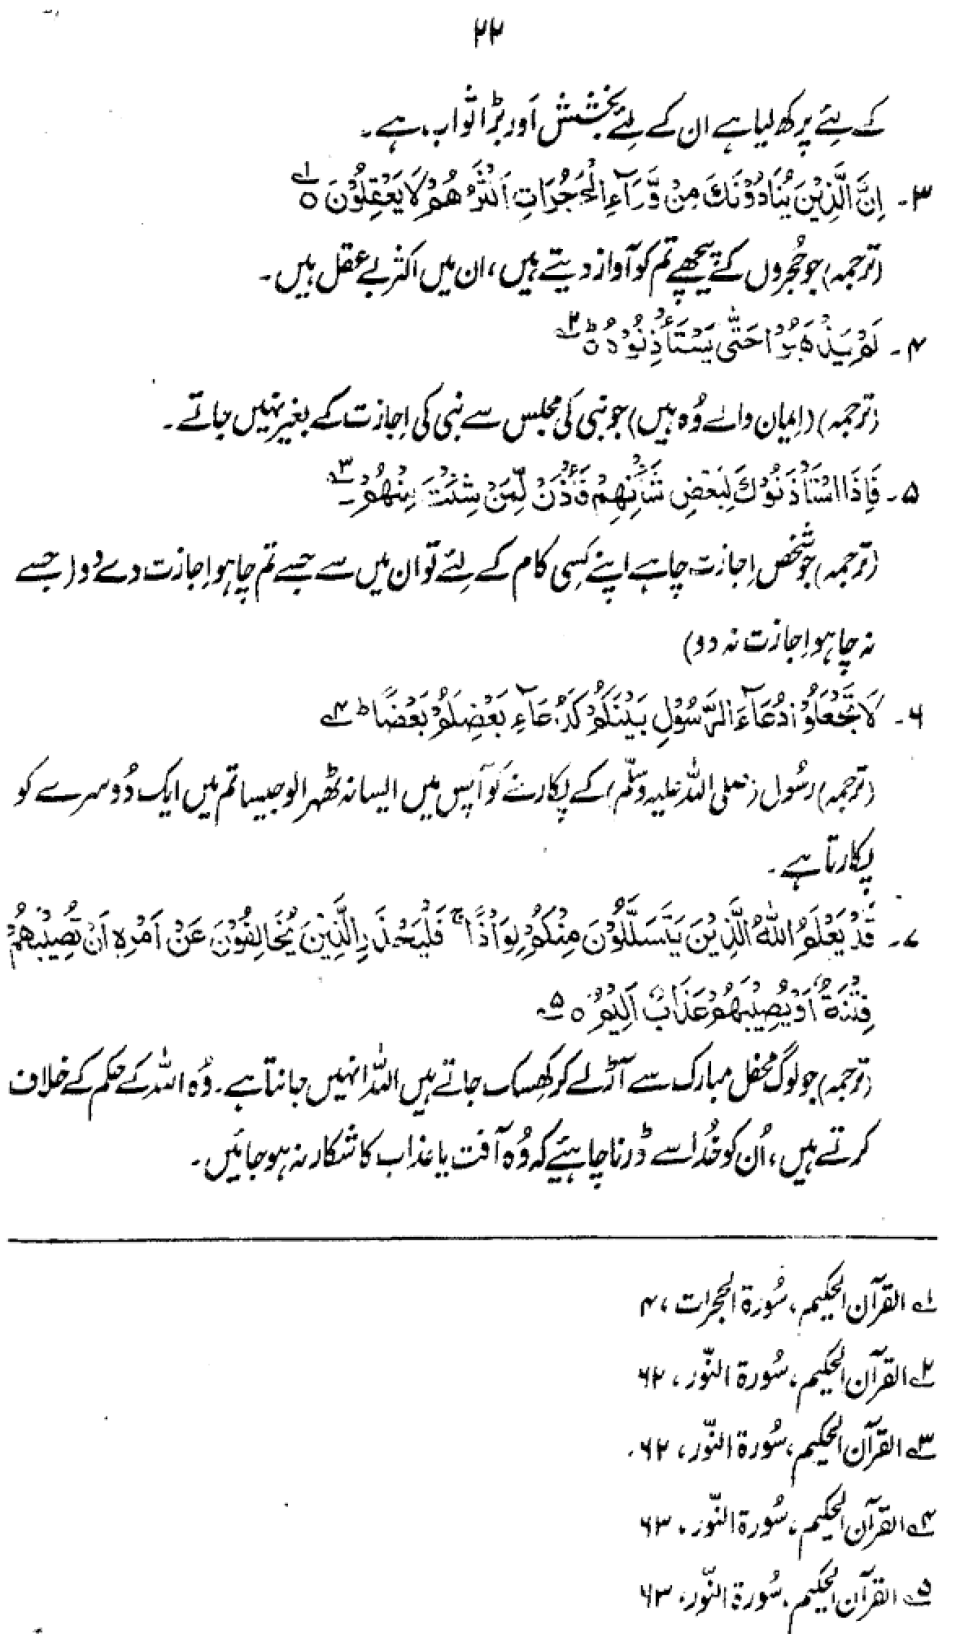 ۲۲
کے لئے پرکھ لیا ہے ان کے لئے بخشش اور بڑا ثواب ہے۔
۳۔ اِنَّ الَّذِیْنَ یُنَادُوْنَكَ مِنْ وَّرَآءِ الْحُجُرَاتِ اَکْثَرُهُمْ لَا یَعْقِلُوْنَ ○ ۱؎
(ترجمہ) جو حُجروں کے پیچھے تم کو آواز دیتے ہیں، ان میں اکثر بے عقل ہیں۔
۴۔ لَمْ یَذْهَبُوْا حَتّٰی یَسْتَاْذِنُوْهُ ؕ ۲؎
(ترجمہ) (ایمان والے وُہ ہیں) جو نبی کی مجلس سے نبی کی اِجازت کے بغیر نہیں جاتے۔
۵۔ فَاِذَا اسْتَاْذَنُوْكَ لِبَعْضِ شَاْنِهِمْ فَاْذَنْ لِّمَنْ شِئْتَ مِنْهُمْ ۳؎
(ترجمہ) جو شخص اِجازت چاہے اپنے کِسی کام کے لئے تو ان میں سے جسے تم چاہو اِجازت دے دو (جسے
نہ چاہو اِجازت نہ دو)
۶۔ لَا تَجْعَلُوْا دُعَآءَ الرَّسُوْلِ بَیْنَکُمْ کَدُعَآءِ بَعْضِکُمْ بَعْضًا ؕ ۴؎
(ترجمہ) رسُول (صلی اللہ علیہ وسلّم) کے پکارنے کو آپس میں ایسا نہ ٹھہرا لو جیسا تم میں ایک دُوسرے کو
پکارتا ہے۔
۷۔ قَدْ یَعْلَمُ اللّٰهُ الَّذِیْنَ یَتَسَلَّلُوْنَ مِنْکُمْ لِوَاذًا ۚ فَلْیَحْذَرِ الَّذِیْنَ یُخَالِفُوْنَ عَنْ اَمْرِهٖ اَنْ تُصِیْبَهُمْ
فِتْنَةٌ اَوْ یُصِیْبَهُمْ عَذَابٌ اَلِیْمٌ ○ ۵؎
(ترجمہ) جو لوگ محفل مبارک سے آڑ لے کر کھسک جاتے ہیں اللہ انہیں جانتا ہے۔ وُہ اللہ کے حکم کے خلاف
کرتے ہیں، اُن کو خُدا سے ڈرنا چاہئیے کہ وُہ آفت یا عذاب کا شکار نہ ہو جائیں۔
۱؎ القرآن الحکیم، سُورۃ الحجرات، ۴
۲؎ القرآن الحکیم، سُورۃ النّور، ۶۲
۳؎ القرآن الحکیم، سُورۃ النّور، ۶۲۔
۴؎ القرآن الحکیم، سُورۃ النّور، ۶۳
۵؎ القرآن الحکیم، سُورۃ النّور، ۶۳